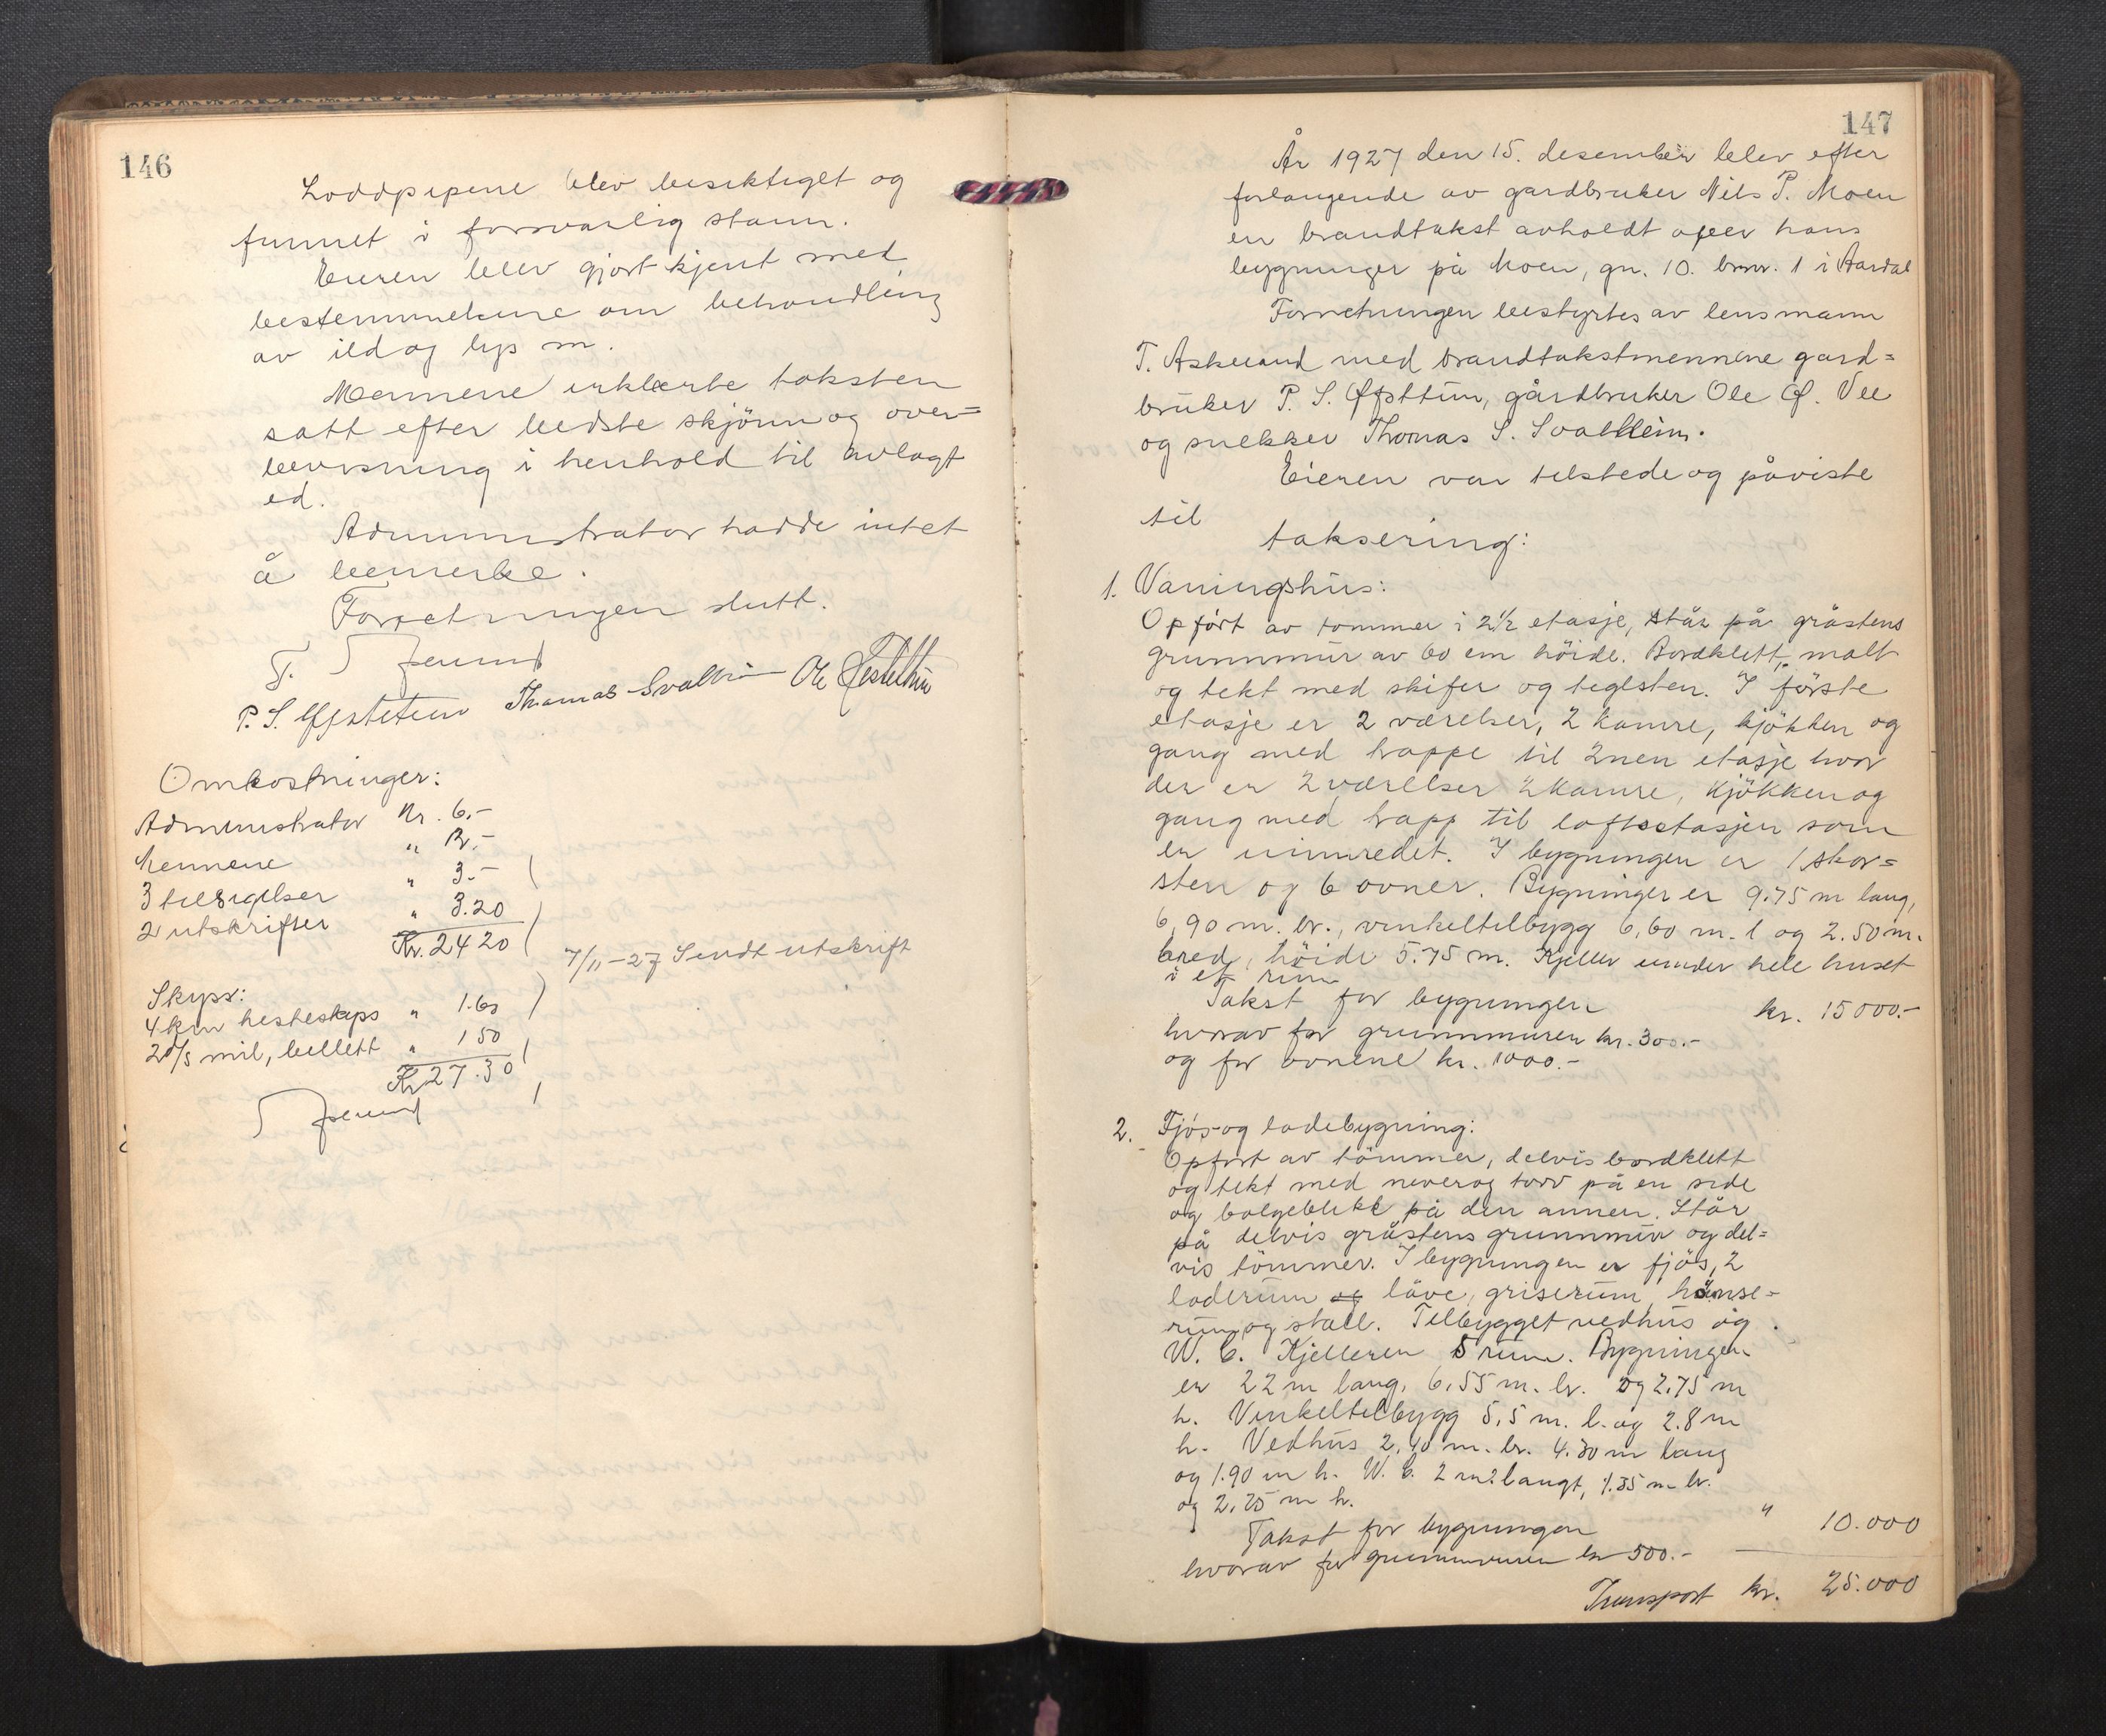 146
Loddpipene blev besiktiget og
funnet i forsvarlig stann.
Eieren blev gjort kjent med
bestemmelsene om behandling
av ild og lys m.
Mennene erklærte taksten
satt efter bedste skjönn og over=
bevisning i henhold til avlagt
ed.
Administrator hadde intet
å bemerke.
Forretningen slutt.
T.
P. S. Øfstetun Thomas Svalheim Ole Hestetun
Omkostninger:
Administrator Kr. 6.-
Mennene " 12.-
3 tilsigelser " 3.-
2 utskrifter " 3.20
Kr. 24 20
7/11-27 Sendt utskrift
Skyss:
4 km hesteskyss " 1.60
2 0/5 mil, billett " 1 50
Kr 27.30
147
År 1927 den 15. desember blev efter
forlangende av gardbruker Nils P. Moen
en brandtakst avholdt over hans
bygninger på Moen, gn. 10. brnr. 1 i Aardal
Forretningen bestyrtes av lensmann
T. Askelund med brandtakstmennene gard=
bruker P. S. Øfsttun, gårdbruker Ole Ø. Vee
og snekker Thomas S. Svalheim.
Eieren var tilstede og påviste
til
taksering:
1. Vaningshus:
Opfört av tommer i 2 1/2 etasje, står på gråstens
grunnmur av 60 cm höide. Bordklett, malt
og tekt med skifer og teglsten. I förste
etasje er 2 værelser, 2 kamre, kjökken og
gang med trappe til 2nen etasje hvor
der er 2 værelser 2 kamre, kjökken og
gang med trapp til loftsetasjen som
er uinnredet. I bygningen er 1 skor=
sten og 6 ovner. Bygninger er 9.75 m lang,
6,90 m. br., vinkeltilbygg 6,60 m. l og 2.50 m.
bred, höide 5.75 m. Kjeller under hele huset
i et rum
Takst for bygningen kr. 15000.-
hvorav for grunnmuren kr. 300.-
og for ovnene kr. 1000.-
2. Fjös og ladebygning:
Opfört av tömmer, delvis bordklett
og tekt med never og torv på en side
og bolgeblikk på den annen. Står
på delvis gråstens grunnmur og del=
vis tömmer. I bygningen er fjös, 2
laderum og låve, griserum, hönse=
rum og stall. Tilbygget vedhus og
W. C. Kjelleren 5 rum. Bygningen
er 22 m lang, 6,55 m. br. og 2.75 m
h. Vinkeltilbygg 5,5 m. l. og 2.8 m
h. Vedhus 2,40 m. br. 4.30 m lang
og 1.90 m h. W. C. 2 m. langt, 1.35 m br.
og 2,25 m h.
Takst for bygningen " 10.000
hvorav for grunnmuren kr 500.-
Transport kr. 25.000